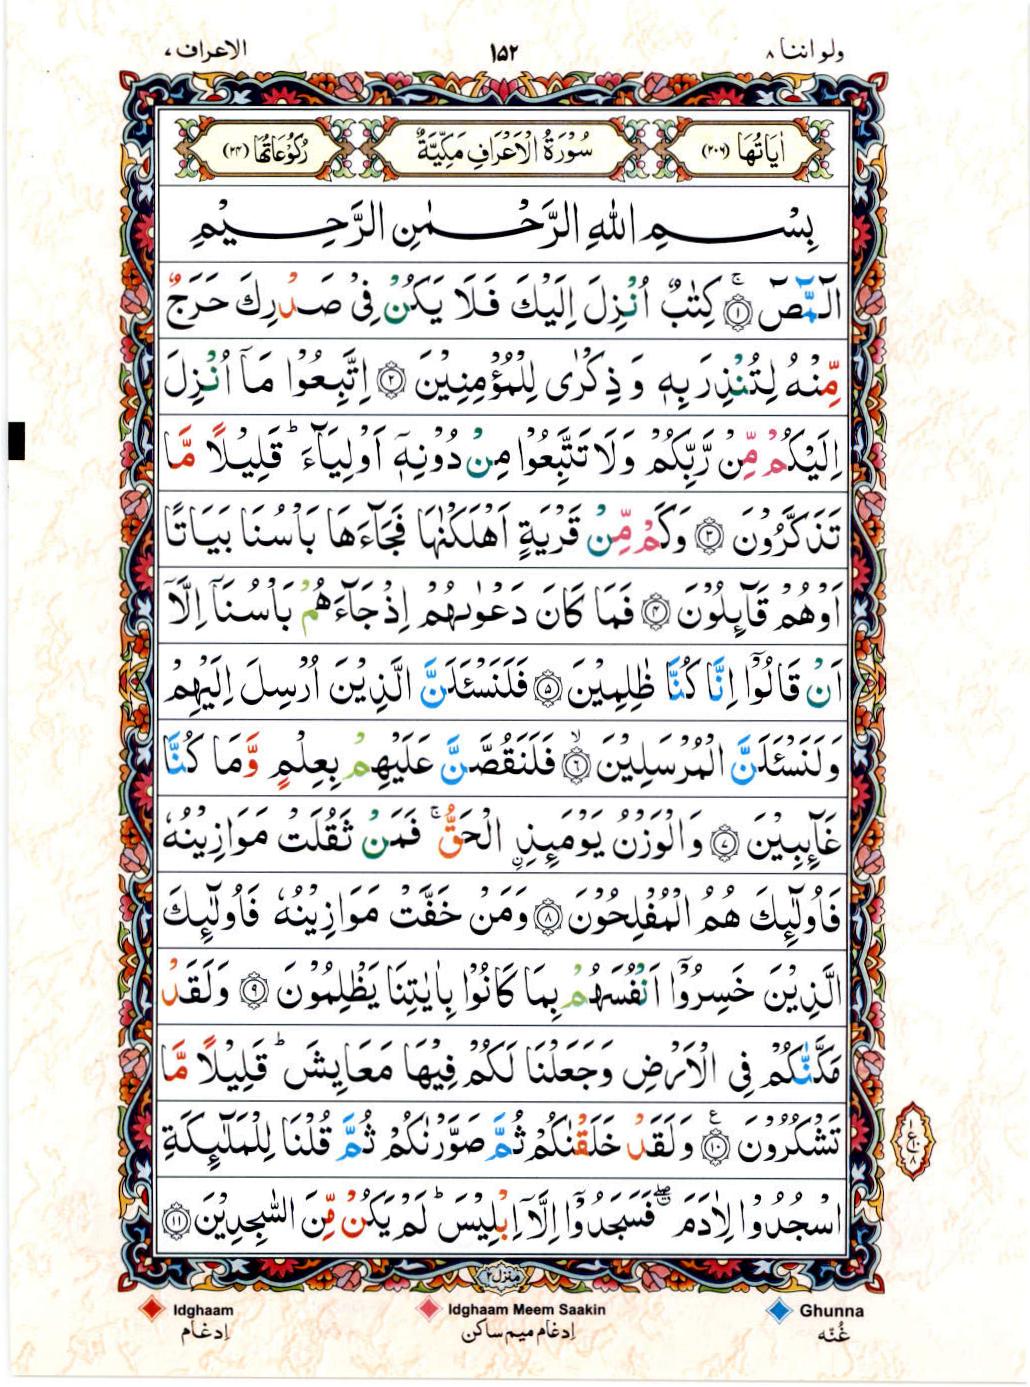 ولو اننا ۸
۱۵۲
الاعراف ۷
اٰيَاتُهَا (۲۰۶)
سُوْرَةُ الْاَعْرَافِ مَكِّيَّةٌ
رُكُوْعَاتُهَا (۲۴)
بِسْمِ اللهِ الرَّحْمٰنِ الرَّحِيْمِ
الٓـمّٓصٓ ۚ ﴿۱﴾ كِتٰبٌ اُنْزِلَ اِلَيْكَ فَلَا يَكُنْ فِىْ صَدْرِكَ حَرَجٌ
مِّنْهُ لِتُنْذِرَ بِهٖ وَ ذِكْرٰى لِلْمُؤْمِنِيْنَ ﴿۲﴾ اِتَّبِعُوْا مَآ اُنْزِلَ
اِلَيْكُمْ مِّنْ رَّبِّكُمْ وَلَا تَتَّبِعُوْا مِنْ دُوْنِهٖٓ اَوْلِيَآءَ ؕ قَلِيْلًا مَّا
تَذَكَّرُوْنَ ﴿۳﴾ وَكَمْ مِّنْ قَرْيَةٍ اَهْلَكْنٰهَا فَجَآءَهَا بَاْسُنَا بَيَاتًا
اَوْ هُمْ قَآئِلُوْنَ ﴿۴﴾ فَمَا كَانَ دَعْوٰىهُمْ اِذْ جَآءَهُمْ بَاْسُنَآ اِلَّآ
اَنْ قَالُوْٓا اِنَّا كُنَّا ظٰلِمِيْنَ ﴿۵﴾ فَلَنَسْئَلَنَّ الَّذِيْنَ اُرْسِلَ اِلَيْهِمْ
وَلَنَسْئَلَنَّ الْمُرْسَلِيْنَ ۙ ﴿۶﴾ فَلَنَقُصَّنَّ عَلَيْهِمْ بِعِلْمٍ وَّمَا كُنَّا
غَآئِبِيْنَ ﴿۷﴾ وَالْوَزْنُ يَوْمَئِذِ ِۨالْحَقُّ ۚ فَمَنْ ثَقُلَتْ مَوَازِيْنُهٗ
فَاُولٰٓئِكَ هُمُ الْمُفْلِحُوْنَ ﴿۸﴾ وَمَنْ خَفَّتْ مَوَازِيْنُهٗ فَاُولٰٓئِكَ
الَّذِيْنَ خَسِرُوْٓا اَنْفُسَهُمْ بِمَا كَانُوْا بِاٰيٰتِنَا يَظْلِمُوْنَ ﴿۹﴾ وَلَقَدْ
مَكَّنّٰكُمْ فِى الْاَرْضِ وَجَعَلْنَا لَكُمْ فِيْهَا مَعَايِشَ ؕ قَلِيْلًا مَّا
تَشْكُرُوْنَ ﴿۱۰﴾ ع وَلَقَدْ خَلَقْنٰكُمْ ثُمَّ صَوَّرْنٰكُمْ ثُمَّ قُلْنَا لِلْمَلٰٓئِكَةِ
اسْجُدُوْا لِاٰدَمَ ۖ فَسَجَدُوْٓا اِلَّآ اِبْلِيْسَ ؕ لَمْ يَكُنْ مِّنَ السّٰجِدِيْنَ ﴿۱۱﴾
منزل ۲
Idghaam
Idghaam Meem Saakin
Ghunna
اِدغام
اِدغام ميم ساكن
غُنّه